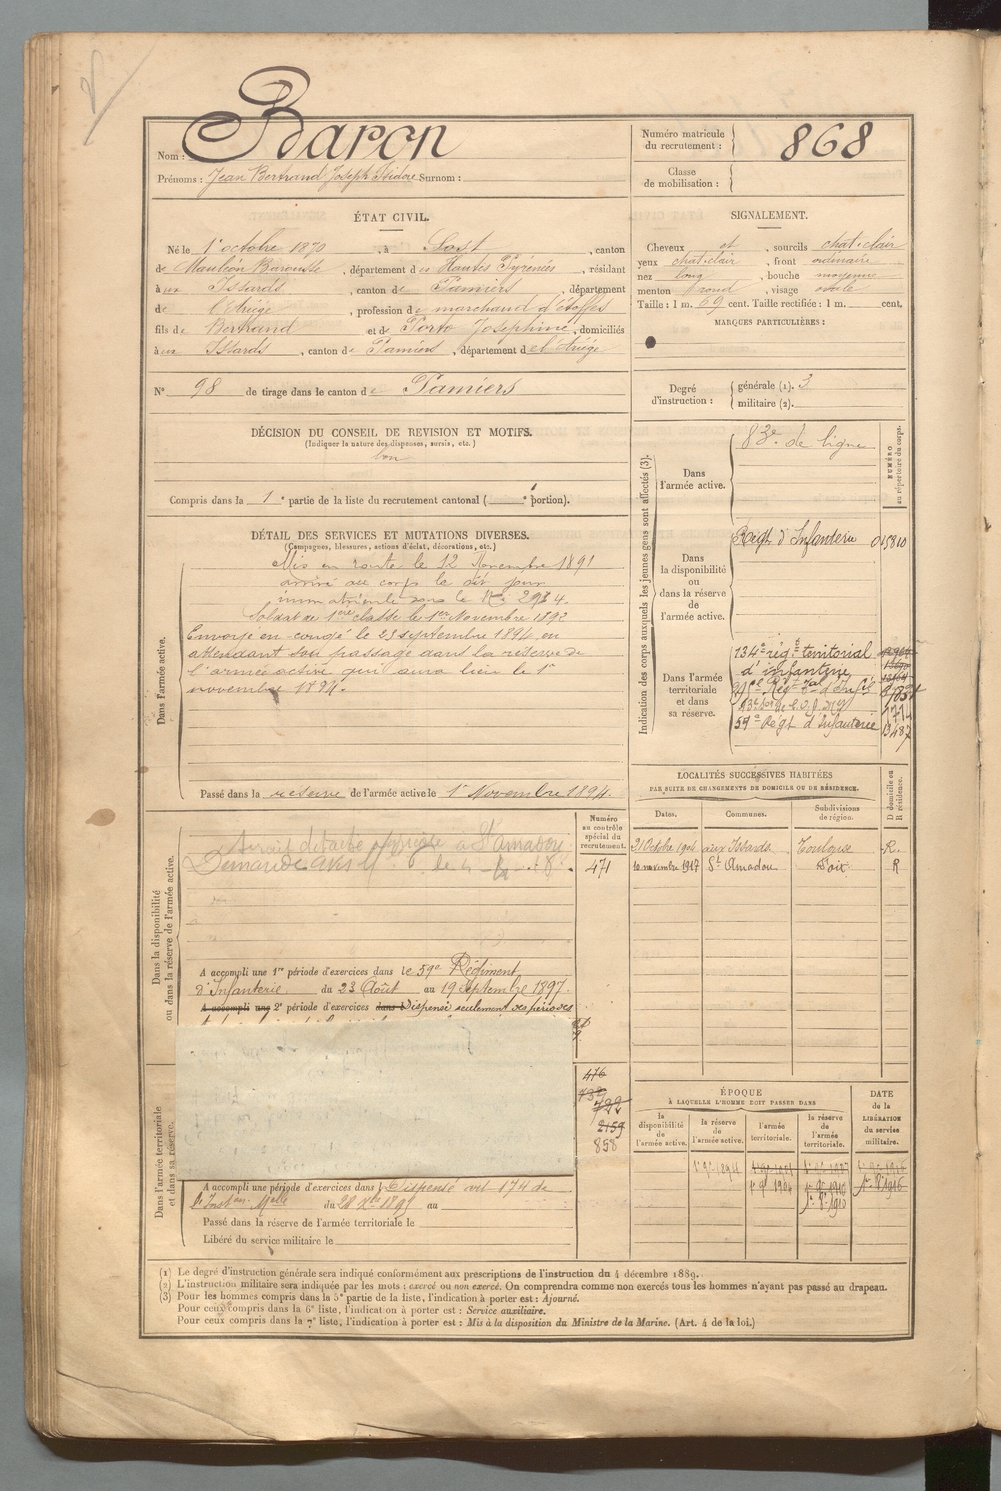 Nom : Baron
Prénoms : Jean Bertrand Joseph Isidore Surnom :
Numéro matricule du recrutement : 868
Classe de mobilisation :
ÉTAT CIVIL.
Né le 1er octobre 1870, à Sost, canton
de Mauléon Barousse, département des Hautes Pyrénées, résidant
à aux Issards, canton de Pamiers, département
de l'Ariège, profession de marchand d'étoffes
fils de Bertrand et de Porte Joséphine, domiciliés
à aux Issards, canton de Pamiers, département de l'Ariège
N° 98 de tirage dans le canton de Pamiers
SIGNALEMENT.
Cheveux et, sourcils chat. clair
yeux chat. clair, front ordinaire
nez long, bouche moyenne
menton rond, visage ovale
Taille : 1 m. 69 cent. Taille rectifiée : 1 m. cent.
MARQUES PARTICULIÈRES :
Degré d'instruction : générale (1). 3
militaire (2).
DÉCISION DU CONSEIL DE REVISION ET MOTIFS.
(Indiquer la nature des dispenses, sursis, etc.)
bon
Compris dans la 1e partie de la liste du recrutement cantonal ( e portion).
DÉTAIL DES SERVICES ET MUTATIONS DIVERSES.
(Campagnes, blessures, actions d'éclat, décorations, etc.)
Dans l'armée active.
Mis en route le 12 Novembre 1891
arrivé au corps le dit jour
immatriculé sous le N° 2984.
Soldat de 1ère classe le 1er Novembre 1892
Envoyé en congé le 23 septembre 1894 en
attendant son passage dans la réserve de
l'armée active qui aura lieu le 1er
novembre 1894.
Passé dans la réserve de l'armée active le 1er Novembre 1894.
Indication des corps auxquels les jeunes gens sont affectés (3).
NUMÉRO au répertoire du corps.
Dans l'armée active.
83e de ligne
Dans la disponibilité ou dans la réserve de l'armée active.
Régt d'Infanterie 015810
Dans l'armée territoriale et dans sa réserve.
134e régt territorial
d'infanterie
59e Régt d'Infanterie 13487
LOCALITÉS SUCCESSIVES HABITÉES
PAR SUITE DE CHANGEMENTS DE DOMICILE OU DE RÉSIDENCE.
Dates. Communes. Subdivisions de région. D domicile ou R résidence.
21 Octobre 1904 aux Issards. Toulouse R.
10 novembre 1917 St Amadou Foix R
Dans la disponibilité ou dans la réserve de l'armée active.
Numéro au contrôle spécial du recrutement.
Serait détaché agricole à St Amadou
471
A accompli une 1re période d'exercices dans le 59e Régiment
d'Infanterie du 23 Août au 19 Septembre 1897.
A accompli une 2e période d'exercices dans l Dispensé seulement des périodes
Dans l'armée territoriale et dans sa réserve.
476
732
722
2159
858
A accompli une période d'exercices dans l Dispensé art 174 de
l'Inston Melle du 28 Xbre 1895 au
Passé dans la réserve de l'armée territoriale le
Libéré du service militaire le
ÉPOQUE
À LAQUELLE L'HOMME DOIT PASSER DANS
la disponibilité de l'armée active.
la réserve de l'armée active.
l'armée territoriale.
la réserve de l'armée territoriale.
DATE de la LIBÉRATION du service militaire.
(1) Le degré d'instruction générale sera indiqué conformément aux prescriptions de l'instruction du 4 décembre 1889.
(2) L'instruction militaire sera indiquée par les mots : exercé ou non exercé. On comprendra comme non exercés tous les hommes n'ayant pas passé au drapeau.
(3) Pour les hommes compris dans la 5e partie de la liste, l'indication à porter est : Ajourné.
Pour ceux compris dans la 6e liste, l'indication à porter est : Service auxiliaire.
Pour ceux compris dans la 7e liste, l'indication à porter est : Mis à la disposition du Ministre de la Marine. (Art. 4 de la loi.)